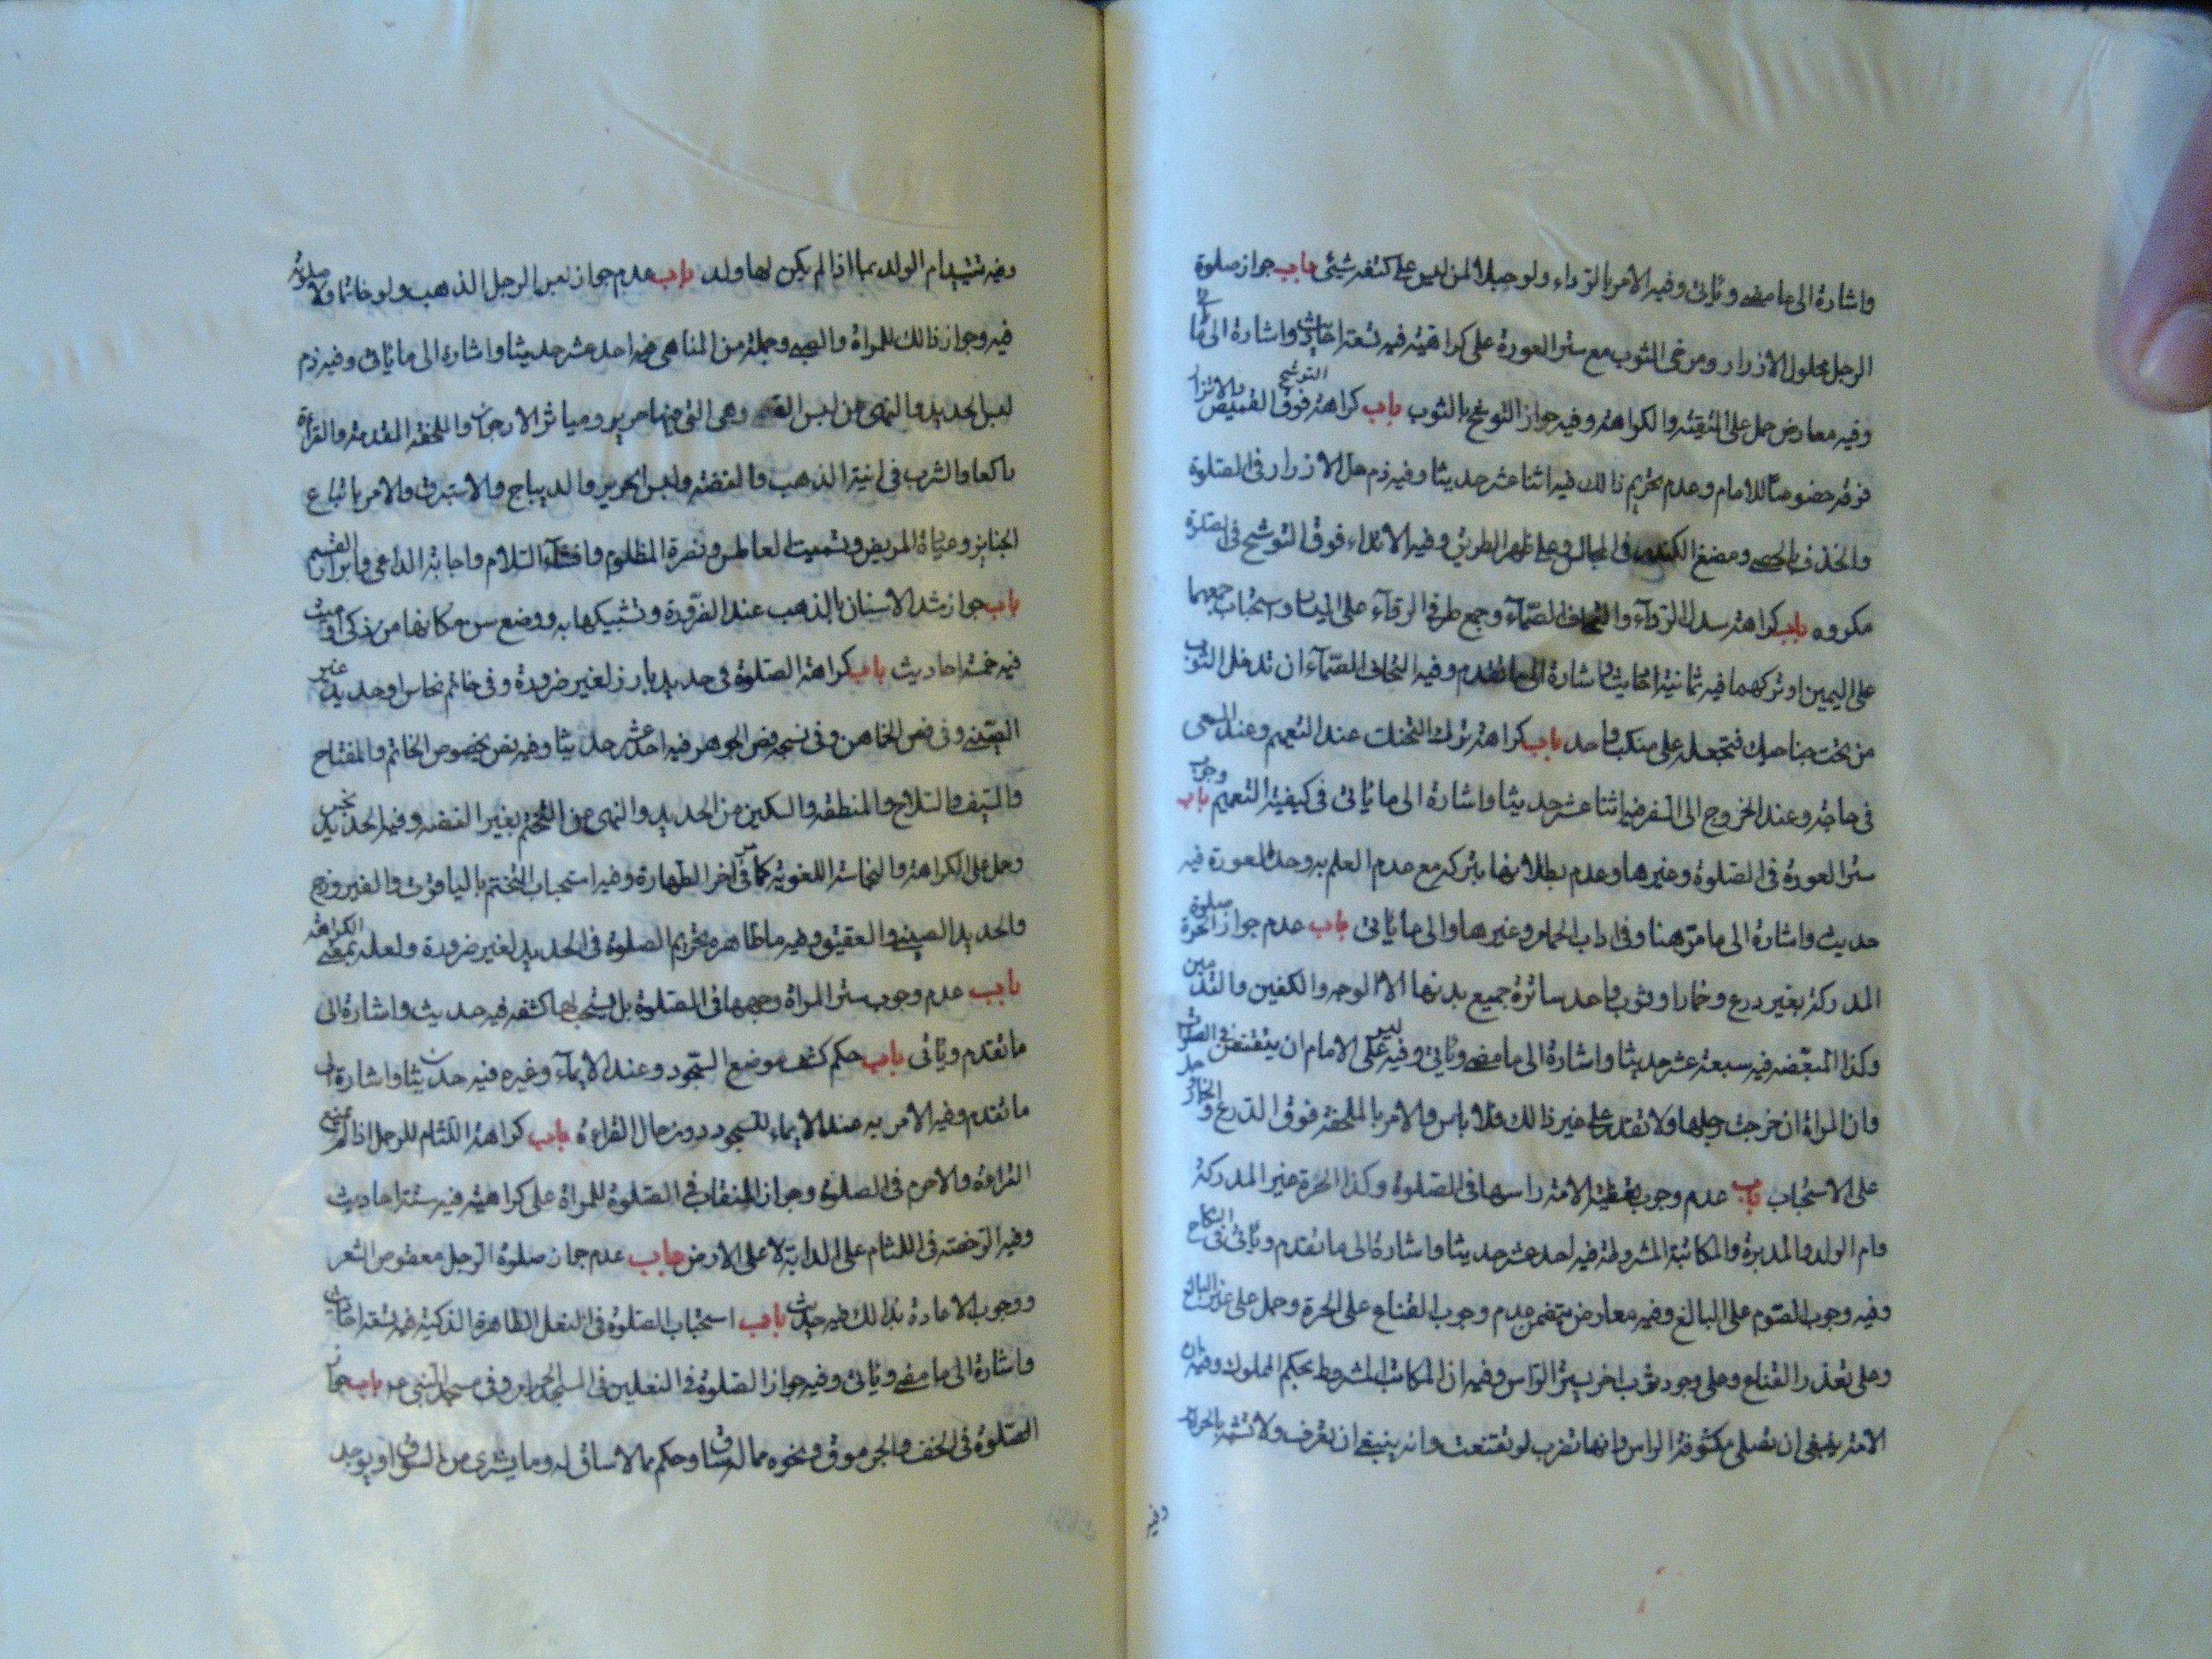 واشارة الى ما مضى وياتى وفيه الامر بالرداء ولو حبلا لمن ليس على كتفه شيئى باب جواز صلوة
الرجل محلول الازرار ومرخى الثوب مع ستر العورة على كراهية فيه تسعة احاديث واشارة الى ما ياتى
وفيه معارض حمل على التقية والكراهة وفيه جواز التوشح بالثوب باب كراهة التوشح فوق القميص والاتزار
فوقه خصوصا للامام وعدم تحريم ذالك فيه اثنا عشر حديثا وفيه ذم حل الازرار فى الصلوة
والخذف بالحصى ومضغ الكندر فى المجالس وعلى ظهر الطريق وفيه الاتداء فوق التوشح فى الصلوة
مكروه باب كراهة سدل الرداء والتحاف الصماء وجمع طرفى الرداء على اليسار واستحباب جمعهما
على اليمين او تركهما فيه ثمانية احاديث واشارة الى ما تقدم وفيه التحاف الصماء ان تدخل الثوب
من تحت جناحيك فتجعله على منكب واحد باب كراهة ترك التحنك عند التعمم وعند السعى
فى حاجة وعند الخروج الى السفر فيه اثنا عشر حديثا واشارة الى ما ياتى فى كيفية التعميم باب وجوب
ستر العورة فى الصلوة وغيرها وعدم بطلانها بتركه مع عدم العلم به وحد العورة فيه
حديث واشارة الى ما مر هنا وفى اداب الحمام وغيرها والى ما ياتى باب عدم جواز صلوة الحرة
المدركة بغير درع وخمار او ثوب واحد ساترة جميع بدنها الا الوجه والكفين والقدمين
وكذا المبعضة فيه سبعة عشر حديثا واشارة الى ما مضى وياتى وفيه ليس على الامة ان يتقنعن فى الصلوة
وان المراة ان خرجت رجلها ولا تقدر على غير ذالك فلا باس والامر بالملحفة فوق الدرع والخمار حمل
على الاستحباب باب عدم وجوب تغطية الامة راسها فى الصلوة وكذا الحرة غير المدركة
وام الولد والمدبرة والمكاتبة المشروطة فيه احد عشر حديثا واشارة الى ما تقدم وياتى فى النكاح
وفيه وجوب الصوم على البالغ وفيه معارض يتضمن عدم وجوب القناع على الحرة وحمل على غير البالغ
وعلى تعذر القناع وعلى وجود ثوب اخر يستر الراس وفيه ان المكاتب المشروط بحكم المملوك وفيه ان
الامة ينبغى ان تصلى مكشوفة الراس وانها تضرب لو تقنعت وانه ينبغى ان تعرف ولا تشتبه بالحرة
وفيه
وفيه تشبه ام الولد بها اذا لم يكن لها ولد باب عدم جواز لبس الرجل الذهب ولو خاتما ولا صلوته
فيه وجواز ذالك للمراة والصبى وجملة من المناهى فيه احد عشر حديثا واشارة الى ما ياتى وفيه ذم
لبس الحديد والنهى عن لبس وهى التى فيها حرير ومياثر الارجوان والملحفة المفدمة والقراءة
راكعا والشرب فى انية الذهب والفضة ولبس الحرير والديباج والاستبرق والامر باتباع
الجنايز وعيادة المريض وتسميت العاطس ونصرة المظلوم وافشاء السلام واجابة الداعى وابرار القسم
باب جواز شد الاسنان بالذهب عند الضرورة وتشبيكها به ووضع سن مكانها من ذكى او ميت
فيه خمسة احاديث باب كراهة الصلوة فى حديد بارز لغير ضرورة وفى خاتم نحاس او حديد غير
الصينى وفى فص الخاهن وفى نسجه وفص الجوهر فيه احد عشر حديثا وفيه نص بخصوص الخاتم والمفتاح
والسيف والسلاح والمنطقة والسكين من الحديد والنهى عن التختم بغير الفضة وفيه الحديد نجس
وحمل على الكراهة والنجاسة اللغوية كما مر فى اخر الطهارة وفيه استحباب التختم بالياقوت والفيروزج
والحديد الصينى والعقيق وفيه ما ظاهره تحريم الصلوة فى الحديد لغير ضرورة ولعله بمعنى الكراهة
باب عدم وجوب ستر المراة وجهها فى الصلوة بل يستحب لها كشفه فيه حديث واشارة الى
ما تقدم وياتى باب حكم كشف موضع السجود وعند الايماء وغيره فيه حديثان واشارة الى
ما تقدم وفيه الامر به عند الايماء للسجود دون حال القراءة باب كراهة اللثام للرجل اذا لم يمنع
القراءة والاحرم فى الصلوة وجواز النقاب فى الصلوة للمراة على كراهية فيه ستة احاديث
وفيه الرخصة فى اللثام على الدابة لا على الارض باب عدم جواز صلوة الرجل معقوص الشعر
ووجوب الاعادة بذالك فيه حديث باب استحباب الصلوة فى النعل الطاهرة الذكية فيه تسعة احاديث
واشارة الى ما مضى وياتى وفيه جواز الصلوة فى النعلين فى المسجد الحرام وفى مسجد النبى ص باب جواز
الصلوة فى الخف والجرموق ونحوه مما له ساق وحكم ما لا ساق له وما يشترى من السوق او يوجد